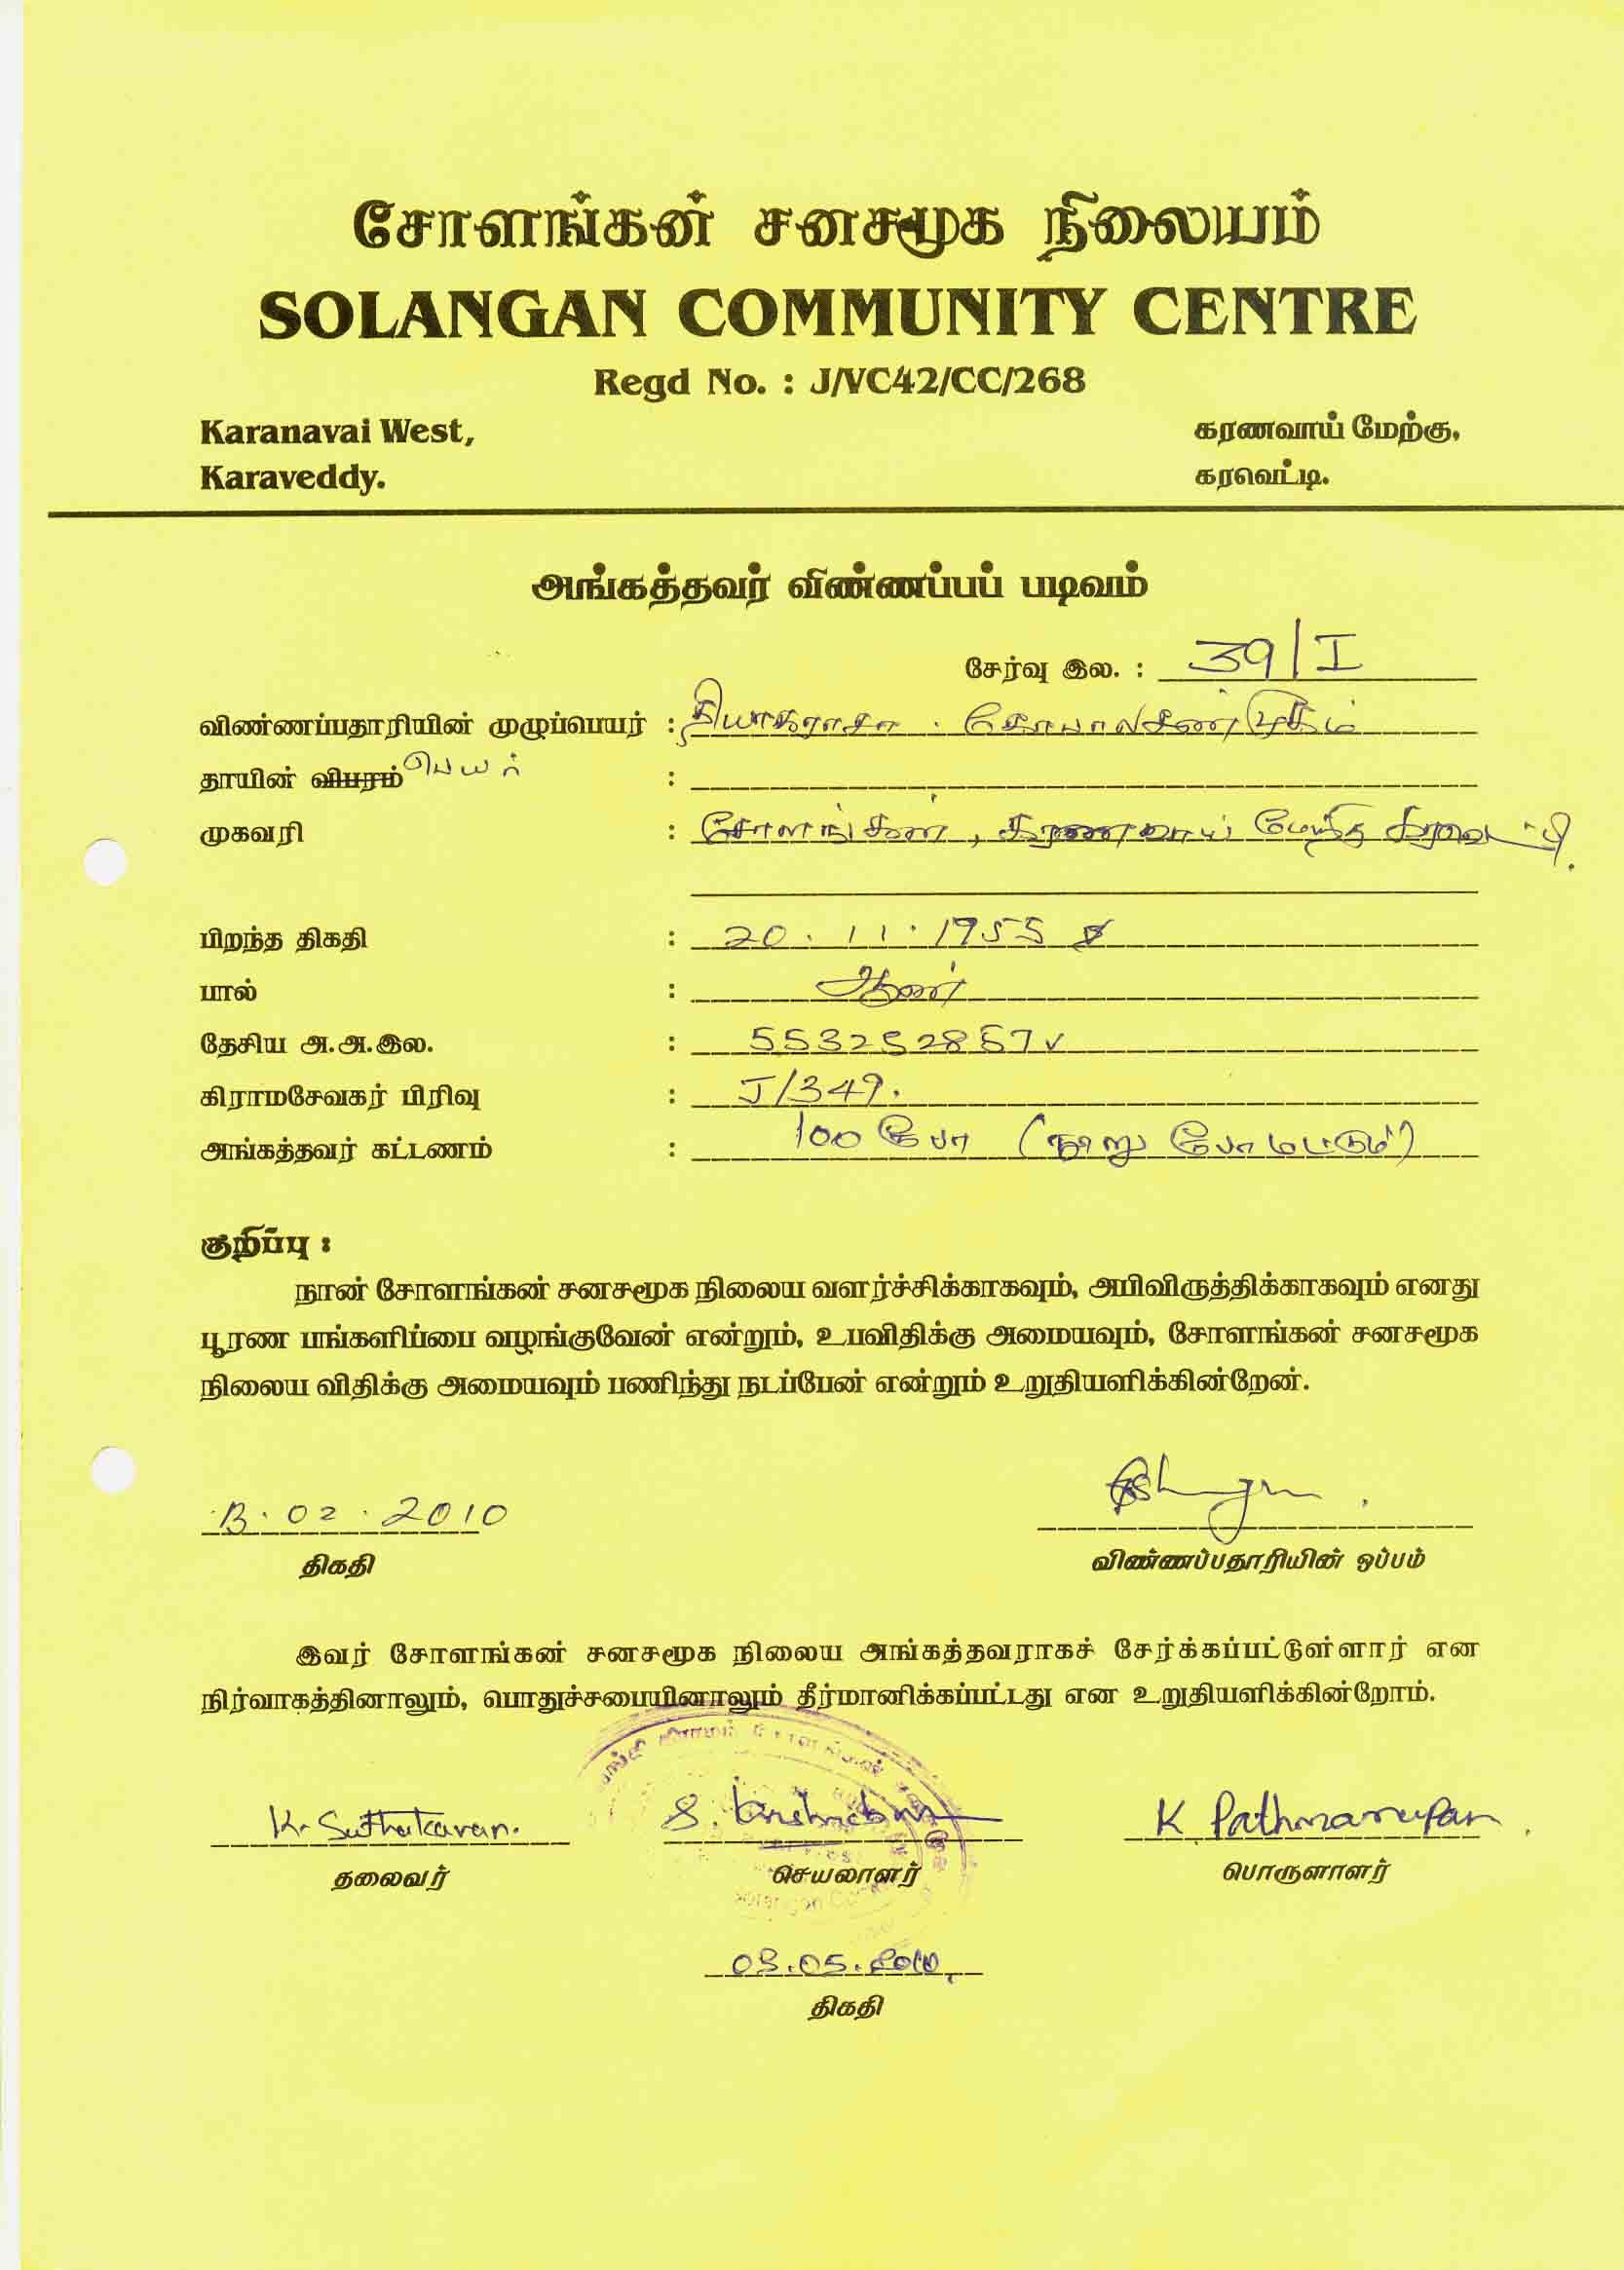 சோளங்கன் சனசமூக நிலையம்
SOLANGAN COMMUNITY CENTRE
Regd No. : J/VC42/CC/268
Karanavai West, கரணவாய் மேற்கு,
Karaveddy. கரவெட்டி.
அங்கத்தவர் விண்ணப்பப் படிவம்
சேர்வு இல. : 39/I
விண்ணப்பதாரியின் முழுப்பெயர் : தியாகராசா . கோபாலசண்முகம்
தாயின் விபரம் பெயர் :
முகவரி : சோளங்கன், கரணவாய் மேற்கு கரவெட்டி.
பிறந்த திகதி : 20.11.1955
பால் : ஆண்
தேசிய அ.அ.இல. : 553252857v
கிராமசேவகர் பிரிவு : J/349.
அங்கத்தவர் கட்டணம் : 100 ரூபா (நூறு ரூபா மட்டும்)
குறிப்பு :
நான் சோளங்கன் சனசமூக நிலைய வளர்ச்சிக்காகவும், அபிவிருத்திக்காகவும் எனது
பூரண பங்களிப்பை வழங்குவேன் என்றும், உபவிதிக்கு அமையவும், சோளங்கன் சனசமூக
நிலைய விதிக்கு அமையவும் பணிந்து நடப்பேன் என்றும் உறுதியளிக்கின்றேன்.
13.02.2010
திகதி விண்ணப்பதாரியின் ஒப்பம்
இவர் சோளங்கன் சனசமூக நிலைய அங்கத்தவராகச் சேர்க்கப்பட்டுள்ளார் என
நிர்வாகத்தினாலும், பொதுச்சபையினாலும் தீர்மானிக்கப்பட்டது என உறுதியளிக்கின்றோம்.
K. Suthakaran. K Pathmarupan.
தலைவர் செயலாளர் பொருளாளர்
03.05.2010
திகதி